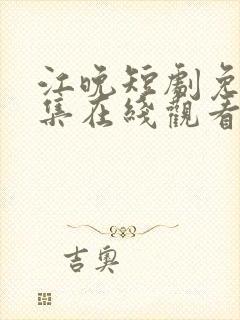 江晚短劇免
集在綫觀看
吉奥